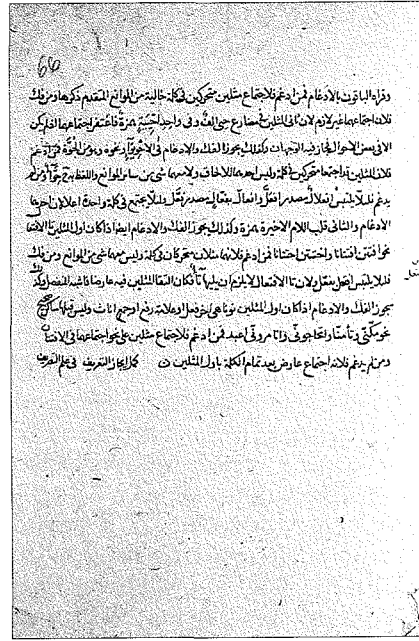 66
وقراه الباقون بالادغام فمن ادغم فلاجتماع مثلين متحركين في كلمة خالية من الموانع المتقدم ذكرها ومن فك
فلان اجتماعهما غير لازم لان ثاني المثلين في مضارع حيي الف وفي واحد احيية همزة فاغتفر اجتماعهما اذ لم يكن
الا في بعض الاحوال فجاز فيه الوجهان وكذلك يجوز الفك والادغام في
فلان المثلين قد اجتمعا متحركين في كلمة وليس احدهما للالحاق ولا معهما شي من ساير الموانع واللفظ به ومن لم
يدغم فلئلا يلتبس افعلال مصدر افعل وافعال بفعال مصدر فعل ولئلا يجتمع في كلمة واحدة اعلالان احدهما
الادغام والثاني قلب اللام الاخيرة همزة وكذلك يجوز الفك والادغام ايضا اذا كان اول المثلين تا الافتعال
نحو اقتتل اقتتالا واختتن اختتانا فمن ادغم فلانهما مثلان متحركان في كلمة وليس معهما شي من الموانع ومن فك
فلئلا يلتبس افتعل بفعل ولان تا الافتعال لا يلزم ان يليها تا فكان التقا المثلين فيه عارضا فاشبه المنفصل وكذلك
يجوز الفك والادغام اذا كان اول المثلين نونا هي اخر فعل او علامة رفع او جمع اناث وليس قبلها ساكن صحيح
نحو مكنني وتأمننا واتحاجوني وتامروني اعبد فمن ادغم فلاجتماع مثلين على نحو اجتماعهما في الافتتان
ومن لم يدغم فلانه اجتماع عارض بعد تمام الكلمة باول المثلين كمل ايجاز التعريف في علم التصريف